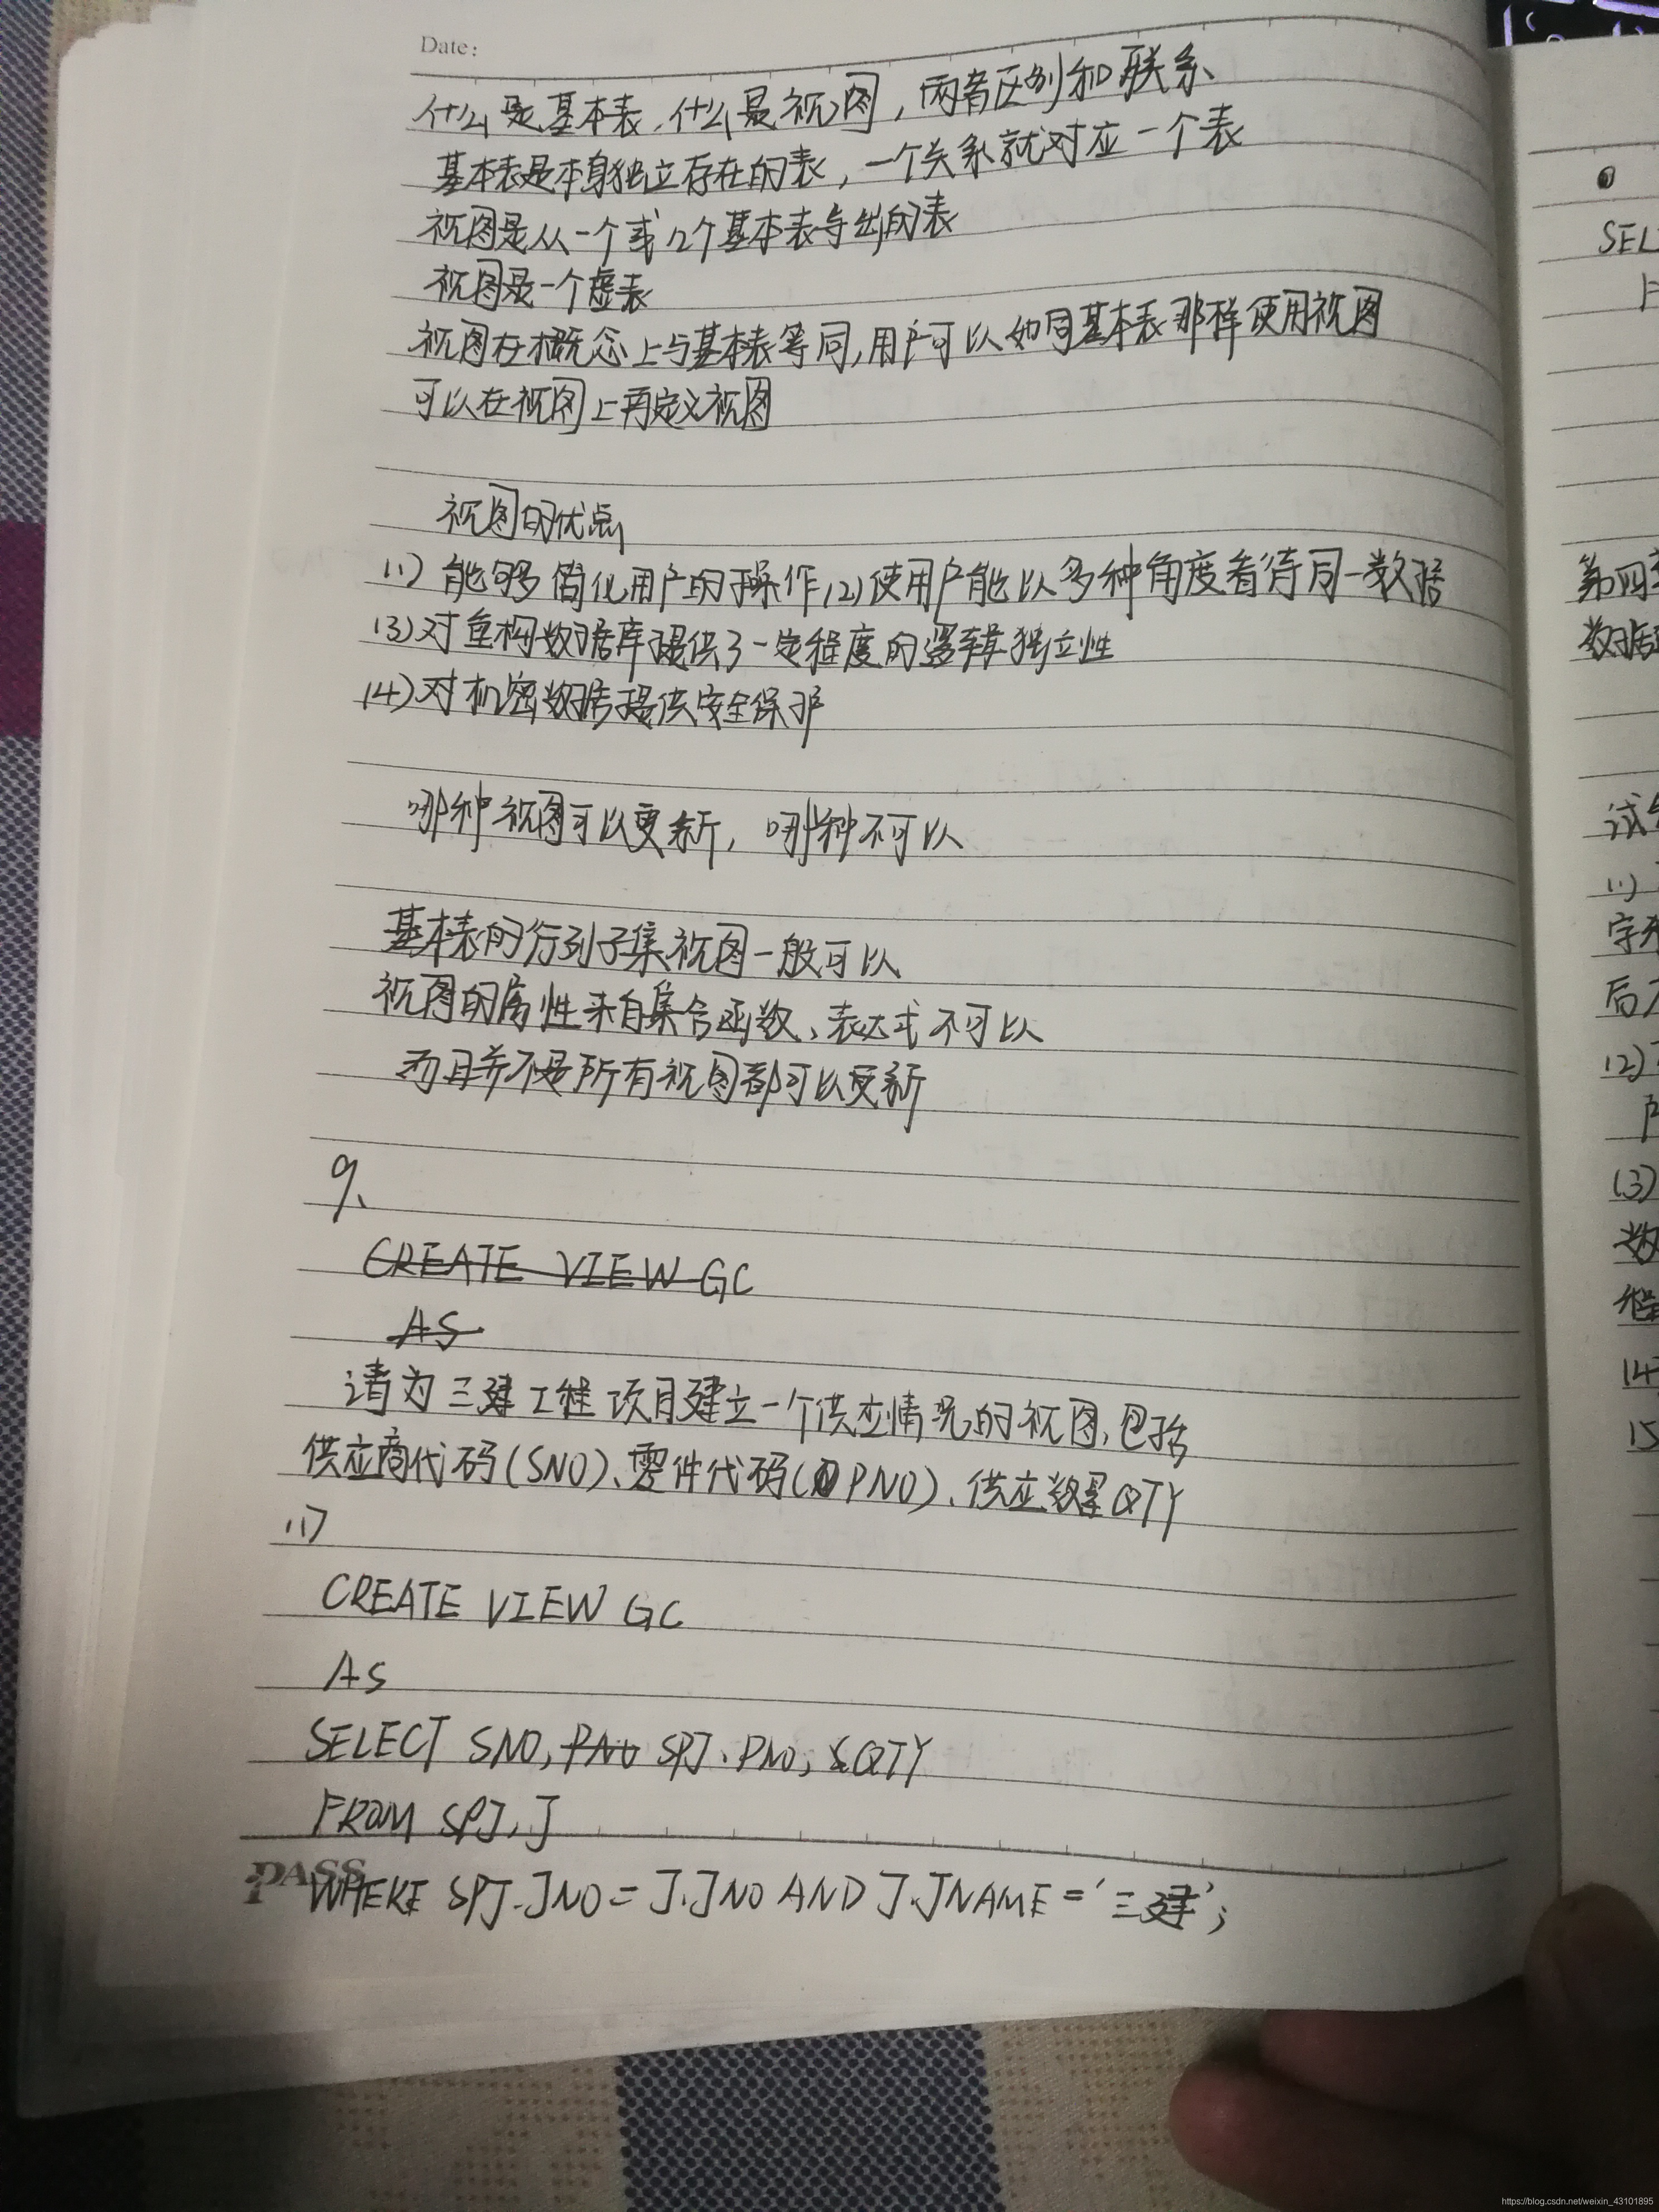 Date:
什么是基本表、什么是视图，两者区别和联系、
基本表是本身独立存在的表，一个关系就对应一个表
视图是从一个或几个基本表导出的表
视图是一个虚表
视图在概念上与基本表等同，用户可以如同基本表那样使用视图
可以在视图上再定义视图
视图的优点
(1)能够简化用户的操作(2)使用户能以多种角度看待同一数据
(3)对重构数据库提供了一定程度的逻辑独立性
(4)对机密数据提供安全保护
哪种视图可以更新，哪种不可以
基本表的行列子集视图一般可以
视图的属性来自集合函数、表达式不可以
而且并不是所有视图都可以更新
9、
CREATE VIEW GC
AS
请为三建工程项目建立一个供应情况的视图，包括
供应商代码(SNO)、零件代码(PNO)、供应数量QTY
(1)
CREATE VIEW GC
AS
SELECT SNO, PNO SPJ.PNO, QTY
FROM SPJ, J
PASS
WHERE SPJ.JNO = J.JNO AND J.JNAME = '三建';
SEL
第四章
数据
(1)
字
后
(2)
(3)
数
(4
(5
https://blog.csdn.net/weixin_43101895